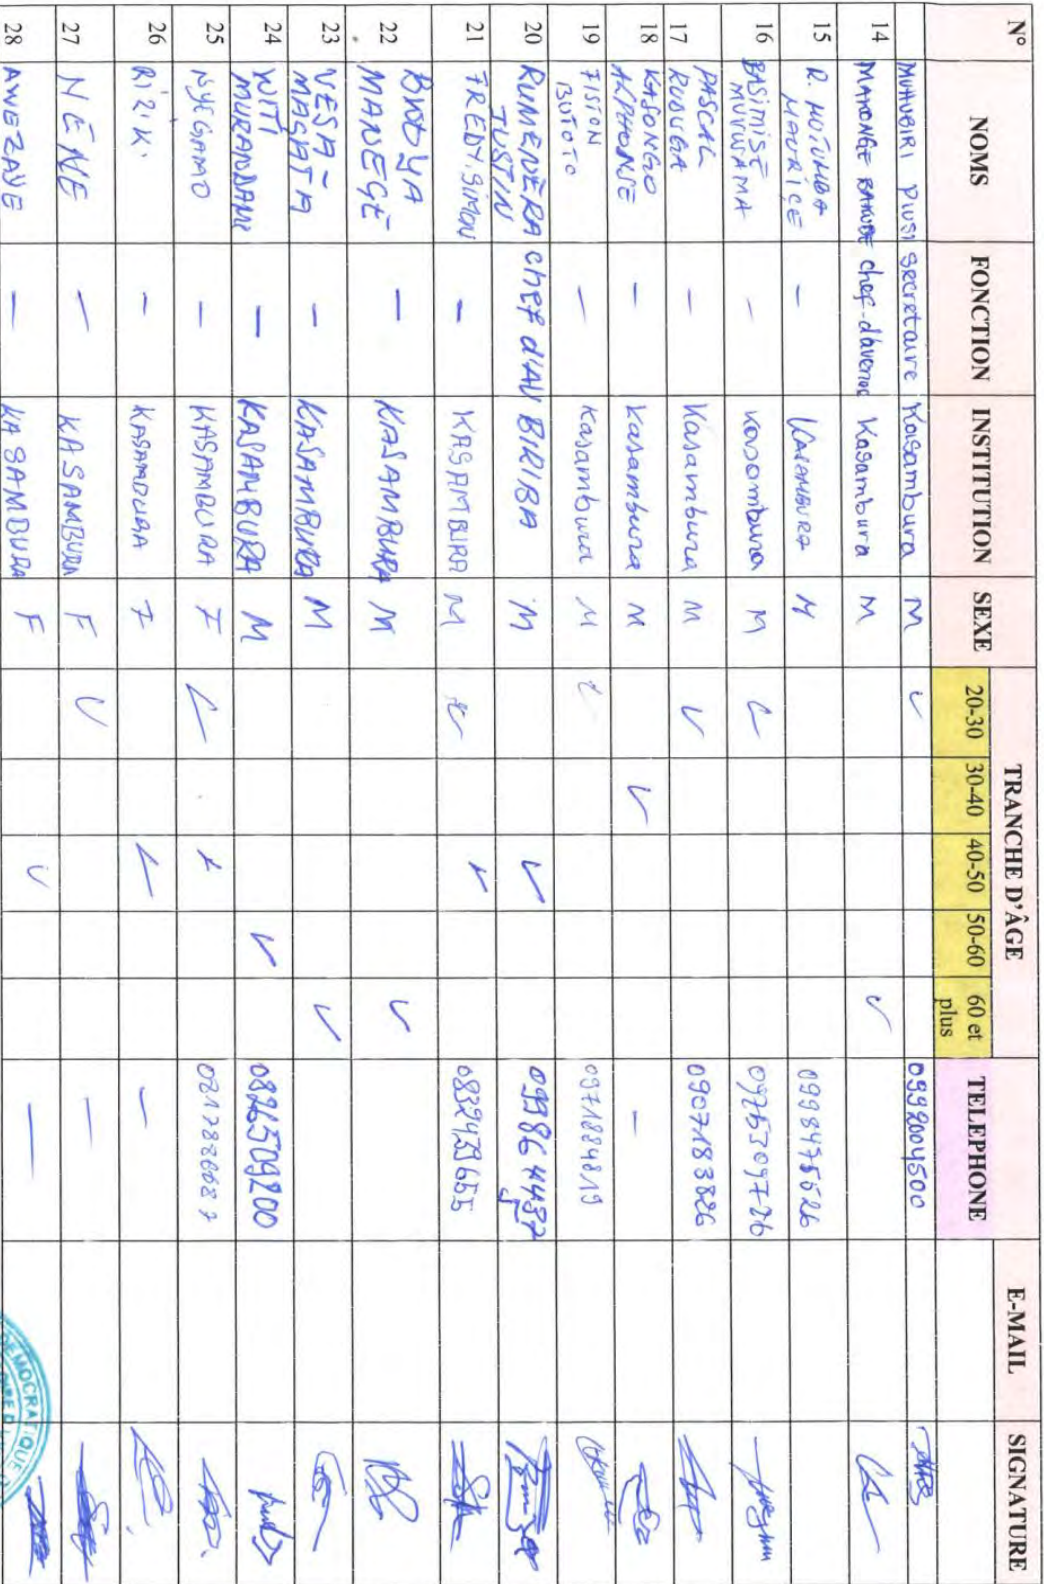 N° NOMS FONCTION INSTITUTION SEXE TRANCHE D'ÂGE TELEPHONE E-MAIL SIGNATURE
20-30 30-40 40-50 50-60 60 et plus
MUHUBIRI PIUSI secretaire Kasambura M ✓ 0992004500
14 MAHONGE BAKOBE chef-d'avenue Kasambura M ✓
15 R. HOTUMBA MAURICE — KASAMBURA M 0998475526
16 BASIMISE MUVUSAMA — Kasombura M ✓ 0976309726
17 PASCAL RUBUGA — Kasambura M ✓ 0907183826
18 KASONGO ALPHONSE — Kasambura M ✓ —
19 FISTON BUTOTO — Kasambura M ✓ 0971884819
20 RUMENERA JUSTIN chef d'AV BIRIBA M ✓ 099864487
21 FREDY.SIMON — KASAMBURA M ✓ ✓ 0832459655
22 BIDOYA MANEGE — KASAMBURA M ✓
23 VESA MAGATA — KASAMBURA M ✓
24 WITI MURANDANI — KASAMBURA M ✓ 0826509200
25 NYEGAMO — KASAMBURA F ✓ ✓ 0817886687
26 RIZIKI — KASAMBURA F ✓ —
27 NÉNE — KASAMBURA F ✓ —
28 AWEZAYE — KASAMBURA F ✓ —
DEMOCRATIQUE